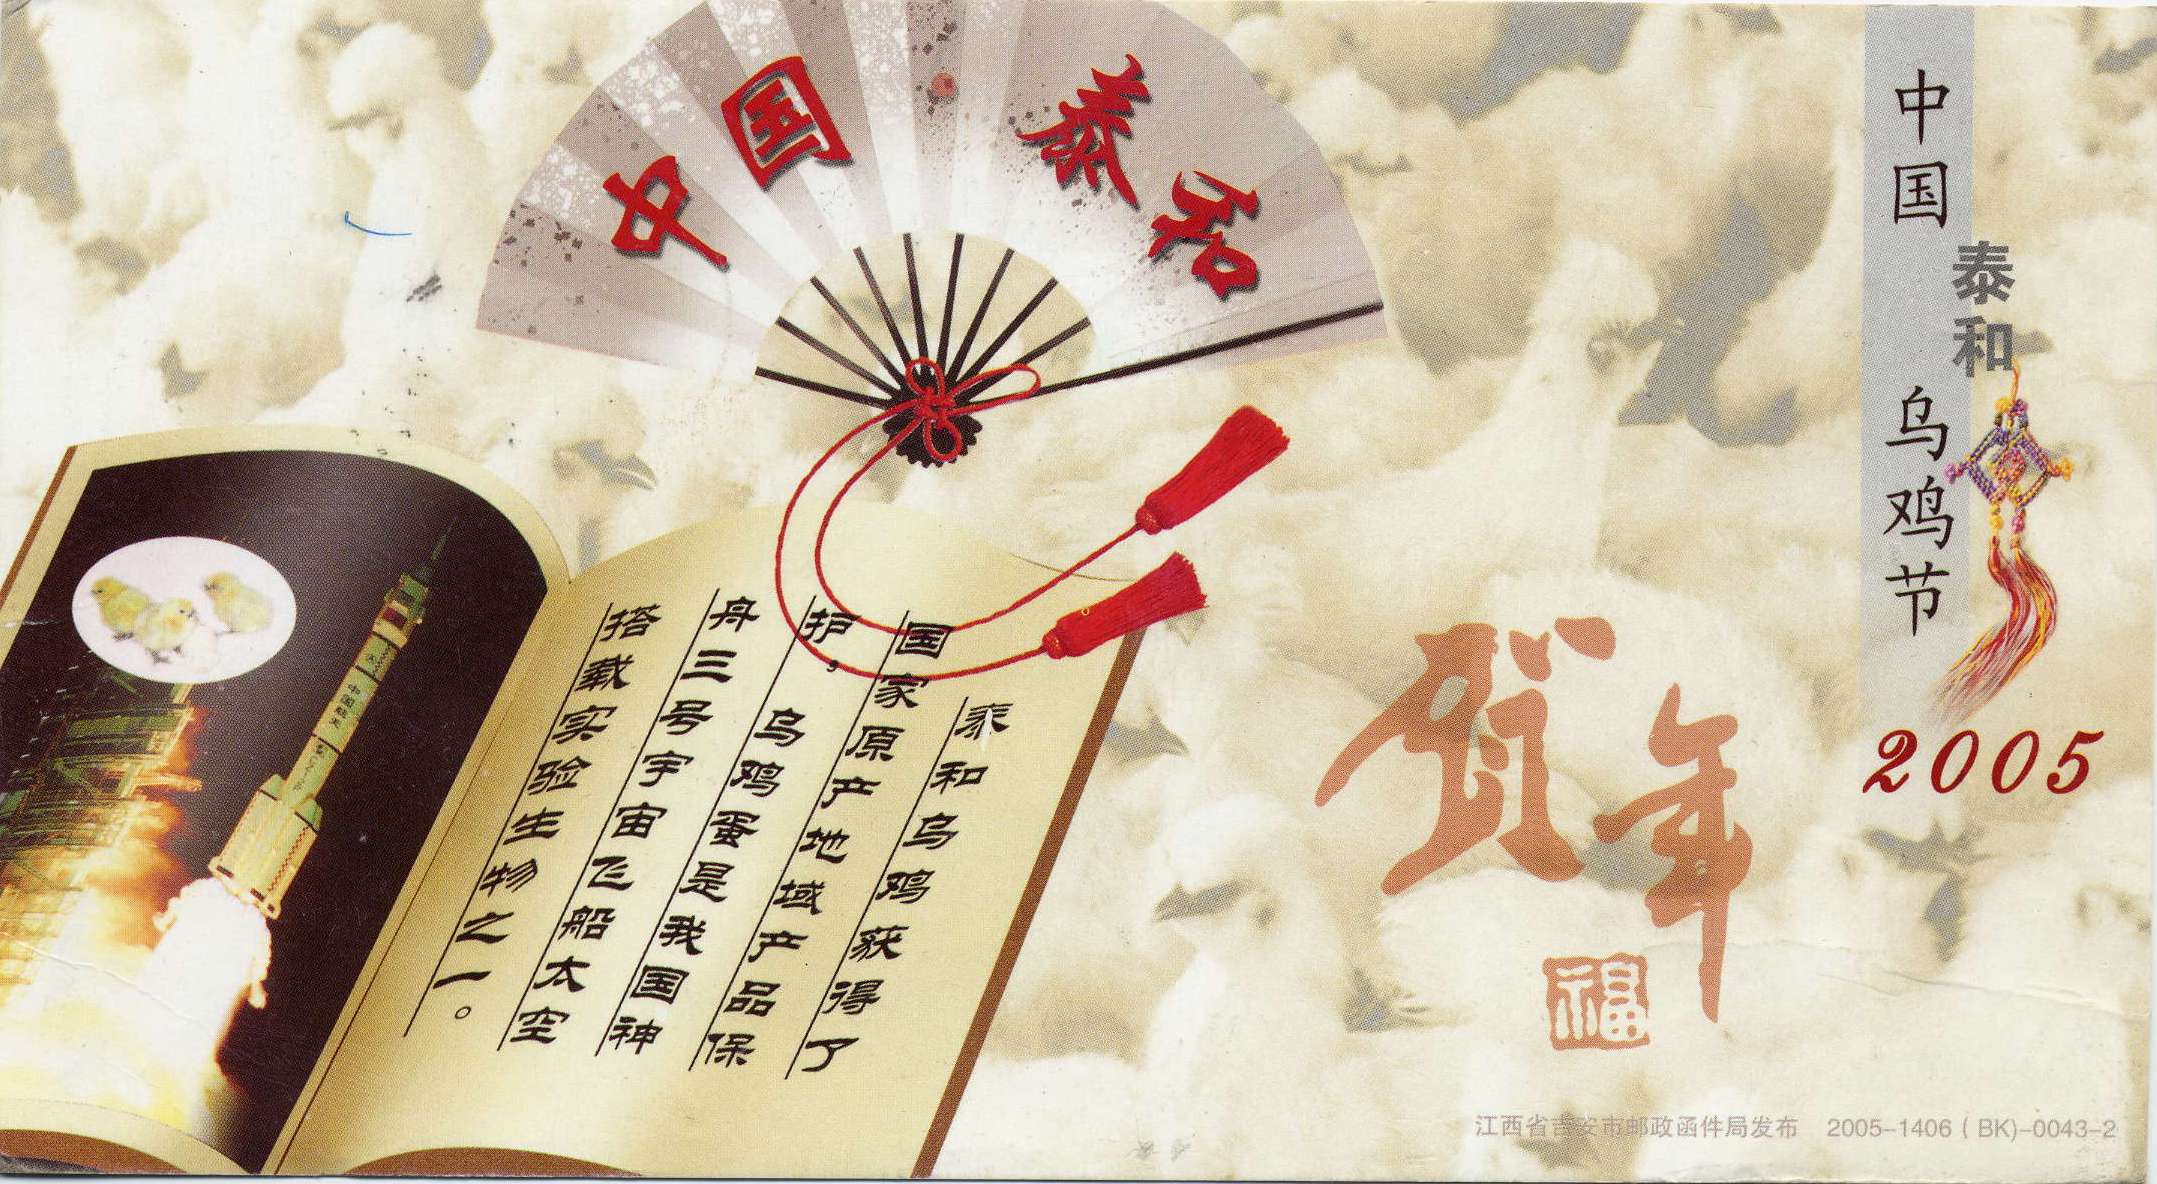 中国 泰和
中国
泰和
乌鸡节
2005
泰和乌鸡获得了
国家原产地域产品保
护。乌鸡蛋是我国神
舟三号宇宙飞船太空
搭载实验生物之一。
中国航天
贺年
福
江西省吉安市邮政函件局发布 2005-1406(BK)-0043-2